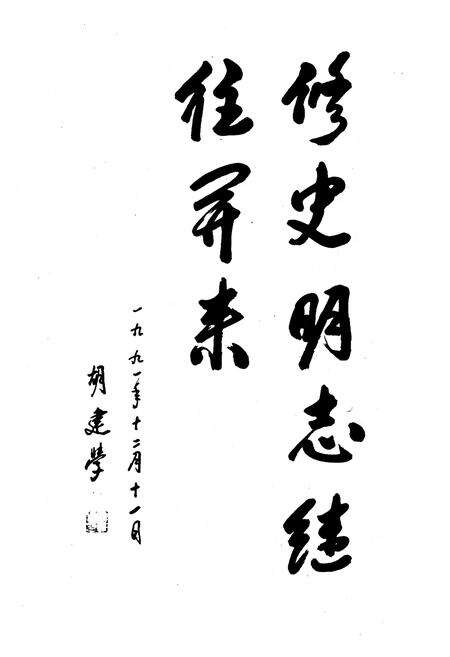 修史明志继
往开来
一九九一年十二月十一日
胡建学